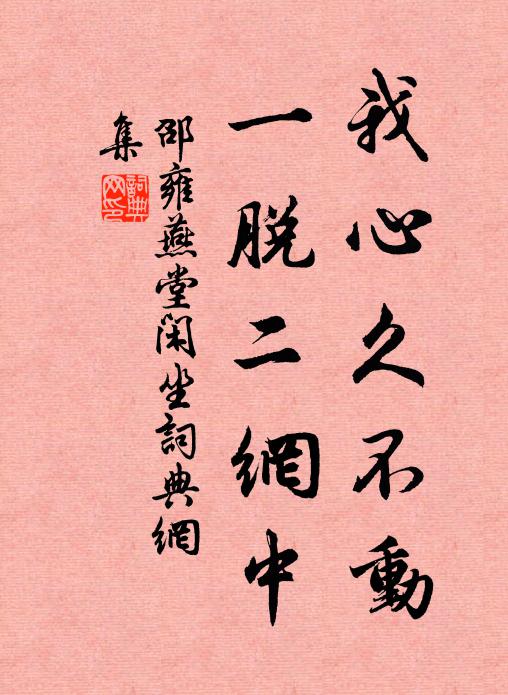 我心久不動
一脫二網中
邵雍燕堂闲坐詞典網
集
詞典
网印